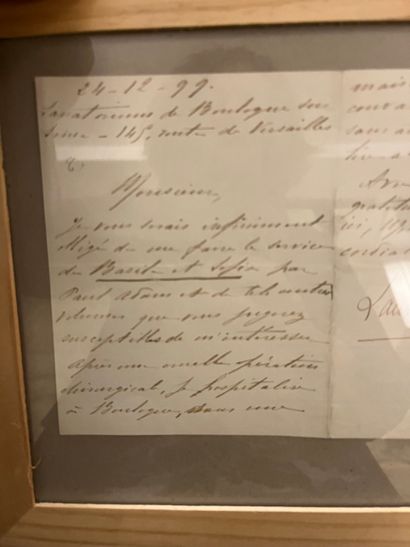 24-12-99.
Sanatorium de Boulogne sur
Seine - 145, route de Versailles
Monsieur,
Je vous serais infiniment
obligé de me faire le service
de Basile et Sofia par
Paul Adam et de tels autres
volumes que vous jugerez
susceptibles de m'intéresser
Après une nouvelle opération
chirurgical, je
à Boulogne, dans une
mais
sans
gratitu
ici, 
cordial